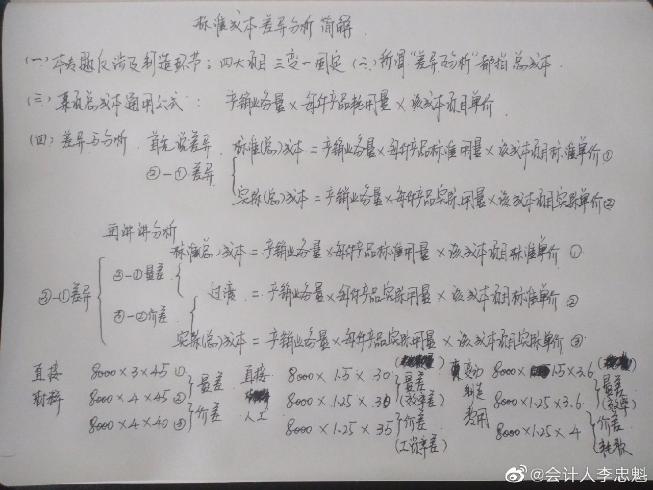 标准成本差异分析 简解
(一)本专题仅涉及制造环节；四大项目 三变一固定 (二)所谓“差异与分析”都指总成本.
(三)某项总成本通用公式： 产销业务量×每件产品耗用量×该成本项目单价
(四)差异与分析. 首先说差异 标准(总)成本＝产销业务量×每件产品标准用量×该成本项目标准单价①
②-①差异
实际(总)成本＝产销业务量×每件产品实际用量×该成本项目实际单价②
再讲讲分析
标准(总)成本＝产销业务量×每件产品标准用量×该成本项目标准单价 ①
③-①差异 ②-①量差 过渡 ＝产销业务量×每件产品实际用量×该成本项目标准单价 ②
③-②价差
实际(总)成本＝产销业务量×每件产品实际用量×该成本项目实际单价③
直接材料 8000×3×45① 直接人工 8000×1.5×30 变动制造费用 8000×1.5×3.6
8000×4×45② 量差 8000×1.25×30 量差(效率差) 8000×1.25×3.6 量差(效率)
8000×4×40③ 价差 8000×1.25×35 价差(工资率差) 8000×1.25×4 价差(耗散)
@会计人李忠魁